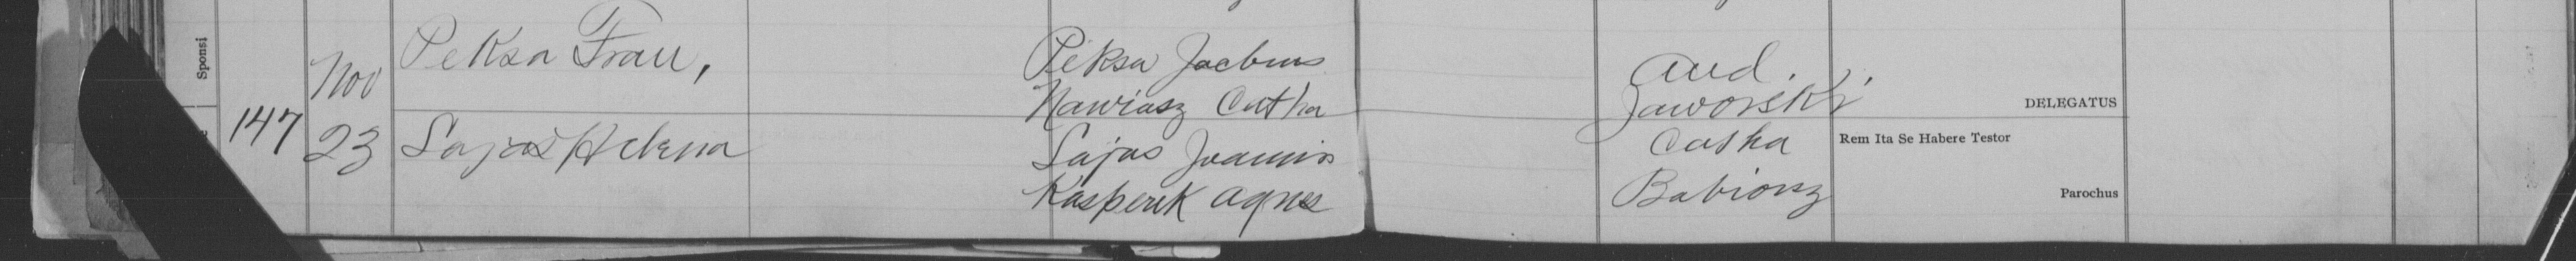 Sponsi
147
Nov
23
Peksa Fran,
Sajas Helena
Peksa Jacbus
Nawiasz Catha
Sajas Joannis
Kasperek Agnes
And.
Jaworski
Catha
Babionz
DELEGATUS
Rem Ita Se Habere Testor
Parochus